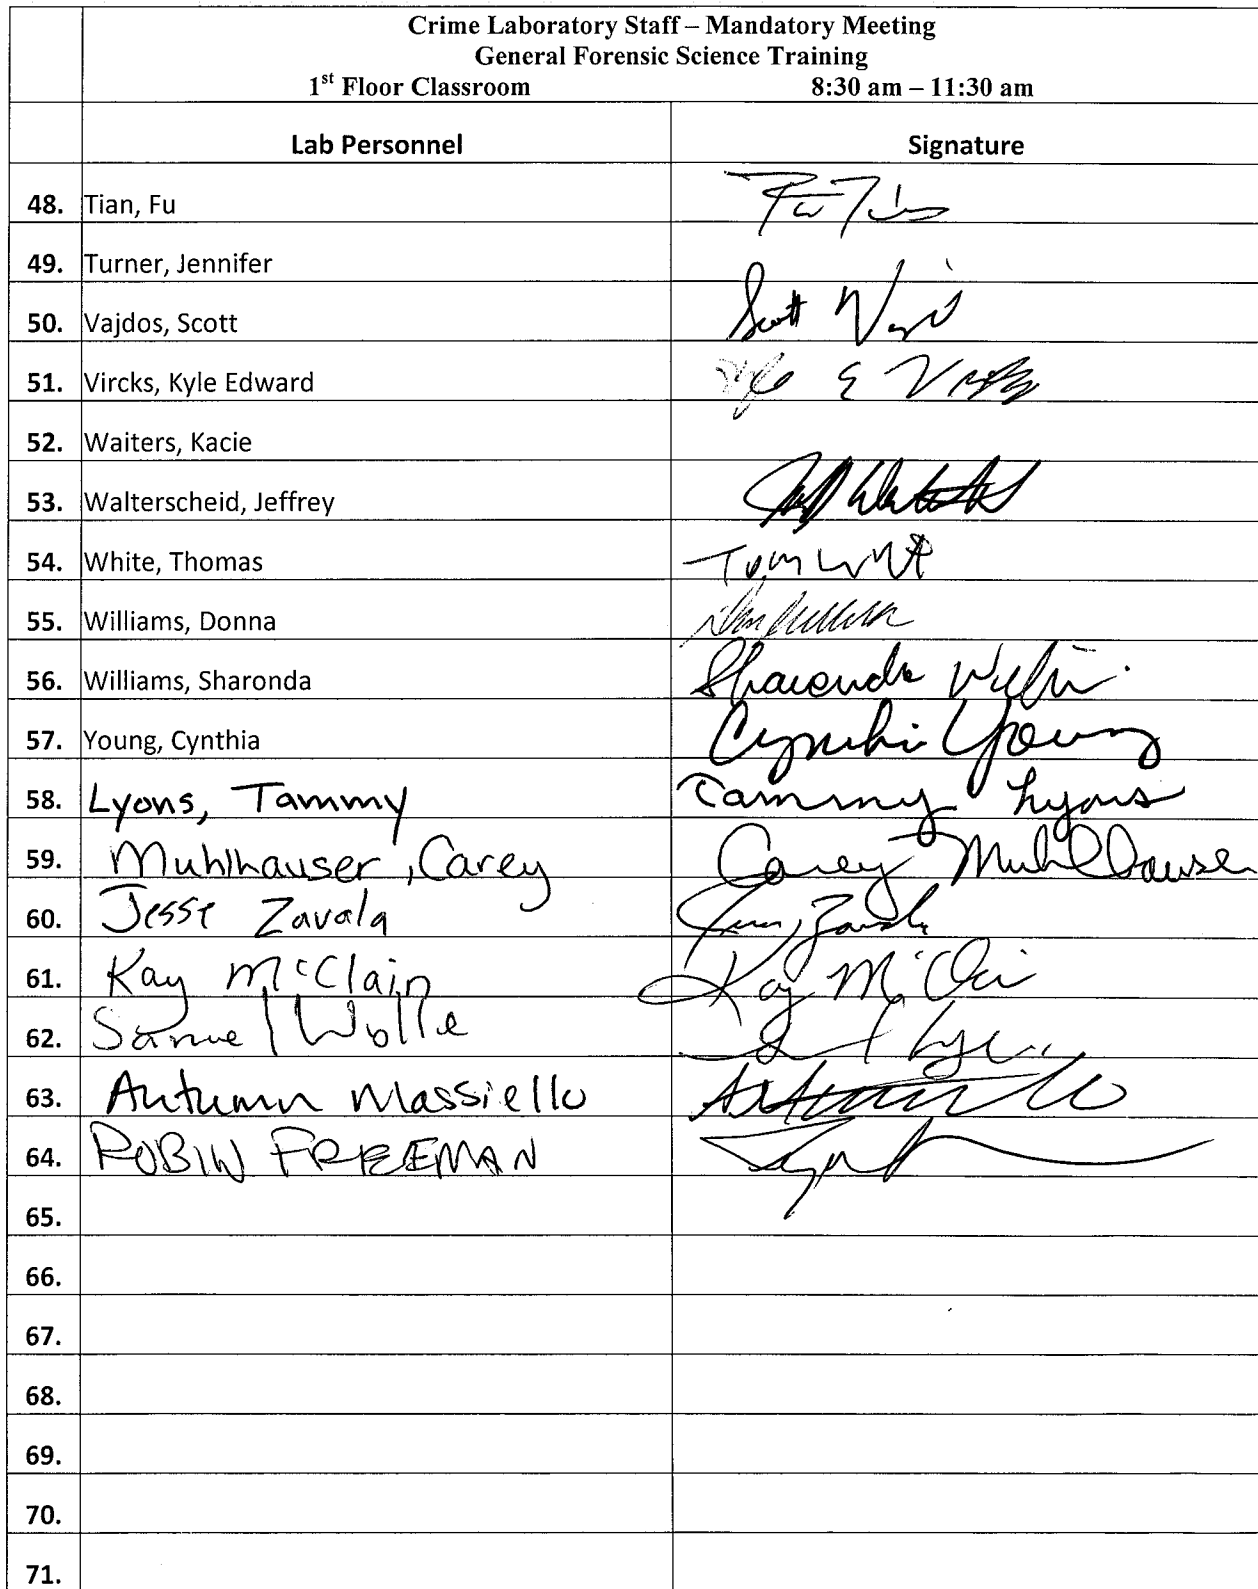 Crime Laboratory Staff – Mandatory Meeting
General Forensic Science Training
1st Floor Classroom 8:30 am – 11:30 am
Lab Personnel Signature
48. Tian, Fu
49. Turner, Jennifer
50. Vajdos, Scott Scott
51. Vircks, Kyle Edward
52. Waiters, Kacie
53. Walterscheid, Jeffrey
54. White, Thomas Tom
55. Williams, Donna
56. Williams, Sharonda Sharonda
57. Young, Cynthia Cynthia Young
58. Lyons, Tammy Tammy Lyons
59. Muhlhauser, Carey Carey Muhlhauser
60. Jesse Zavala
61. Kay McClain Kay
62. Samuel Wolle
63. Autumn Massiello
64. ROBIN FREEMAN
65.
66.
67.
68.
69.
70.
71.